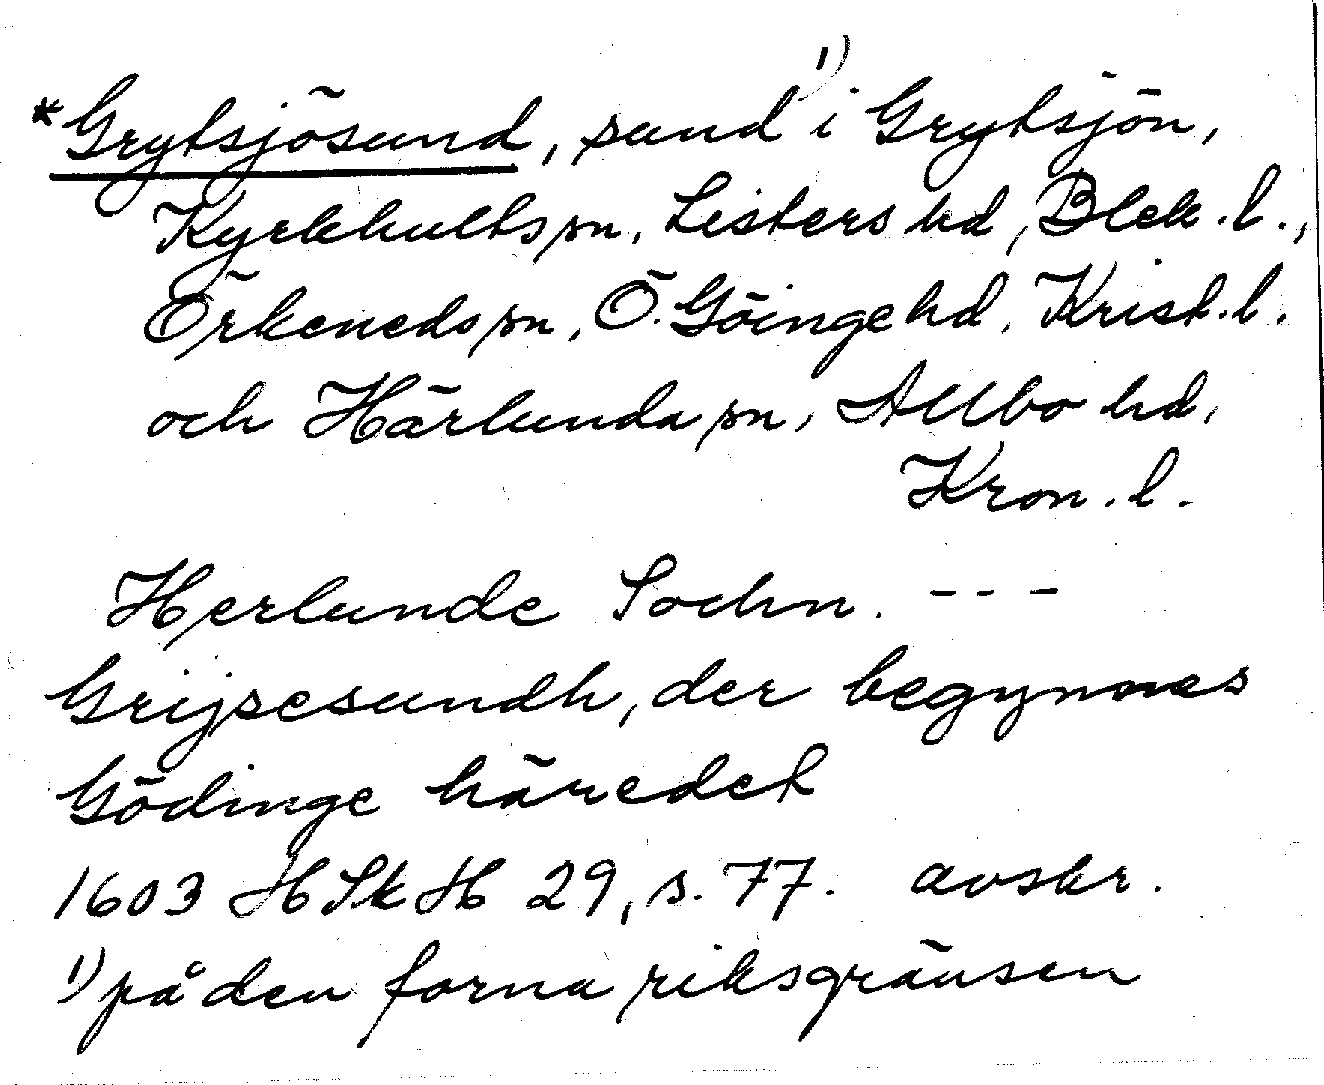 *Grytsjösund, sund ¹⁾ i Grytsjön,
Kyrkhults sn, Listers hd, Blek. l.,
Örkeneds sn, Ö. Göinge hd, Krist. l.
och Härlunda sn, Allbo hd,
Kron. l.
Herlunde Sochn. - - -
Grijsesundh, der begynnes
Gödinge häredet
1603 HSkH 29, s. 77. avskr.
¹⁾ på den forna riksgränsen